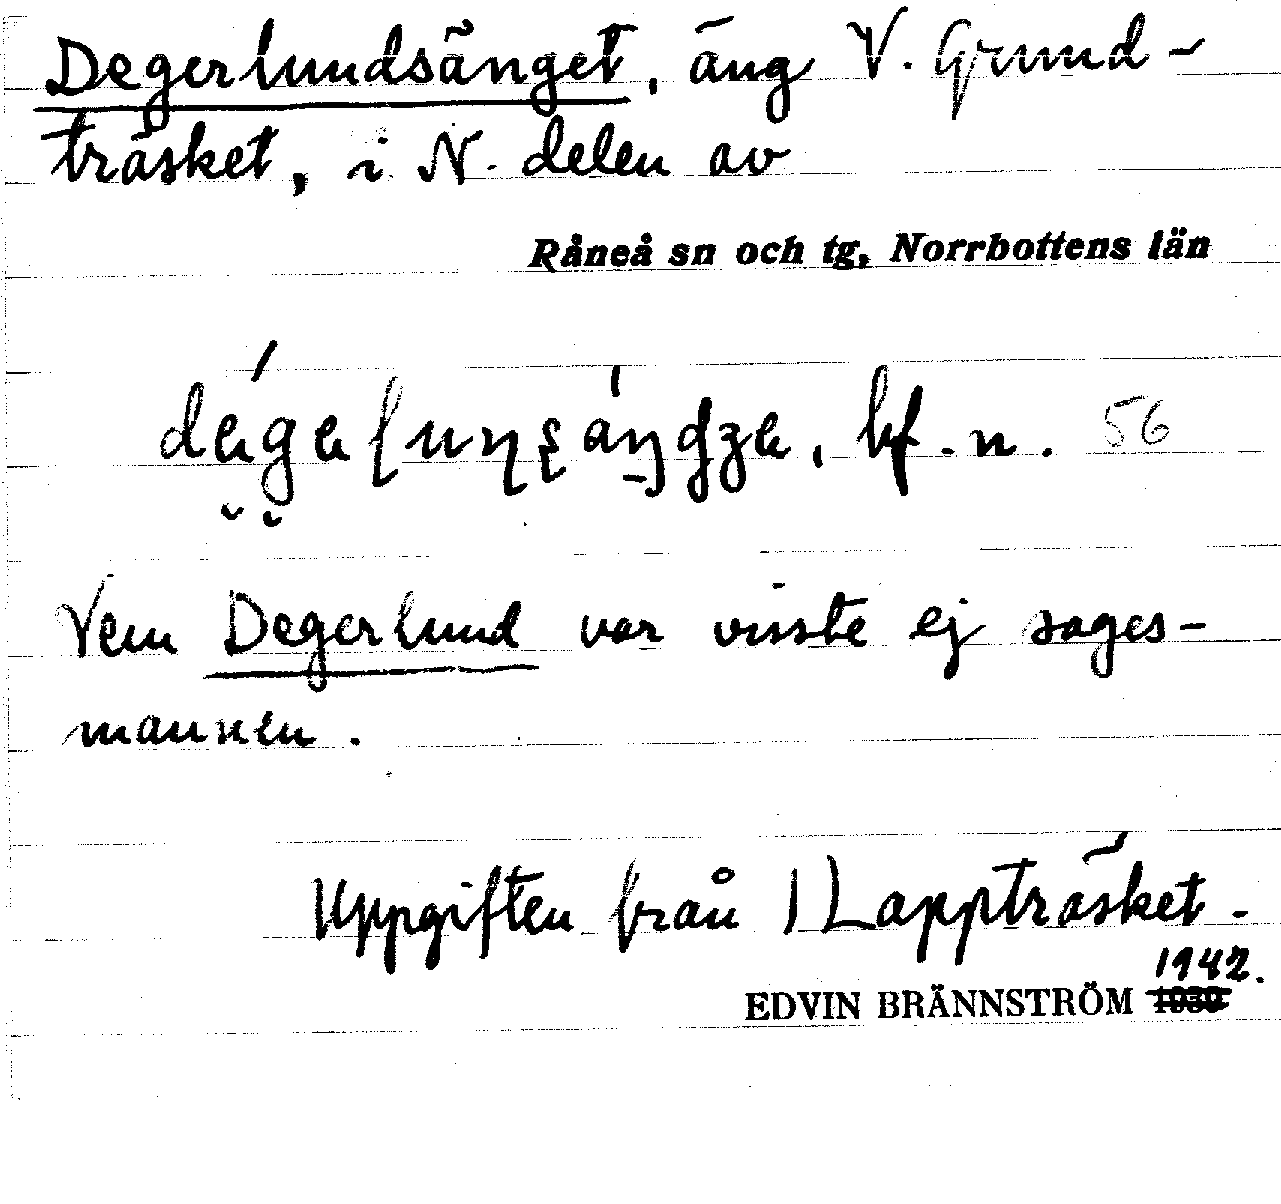 Degerlundsänget, äng V. Grund-
träsket, i N. delen av
Råneå sn och tg, Norrbottens län
bf. n. 56
Vem Degerlund var visste ej sages-
mannen.
Uppgiften från Lappträsket.
1942.
EDVIN BRÄNNSTRÖM 1930